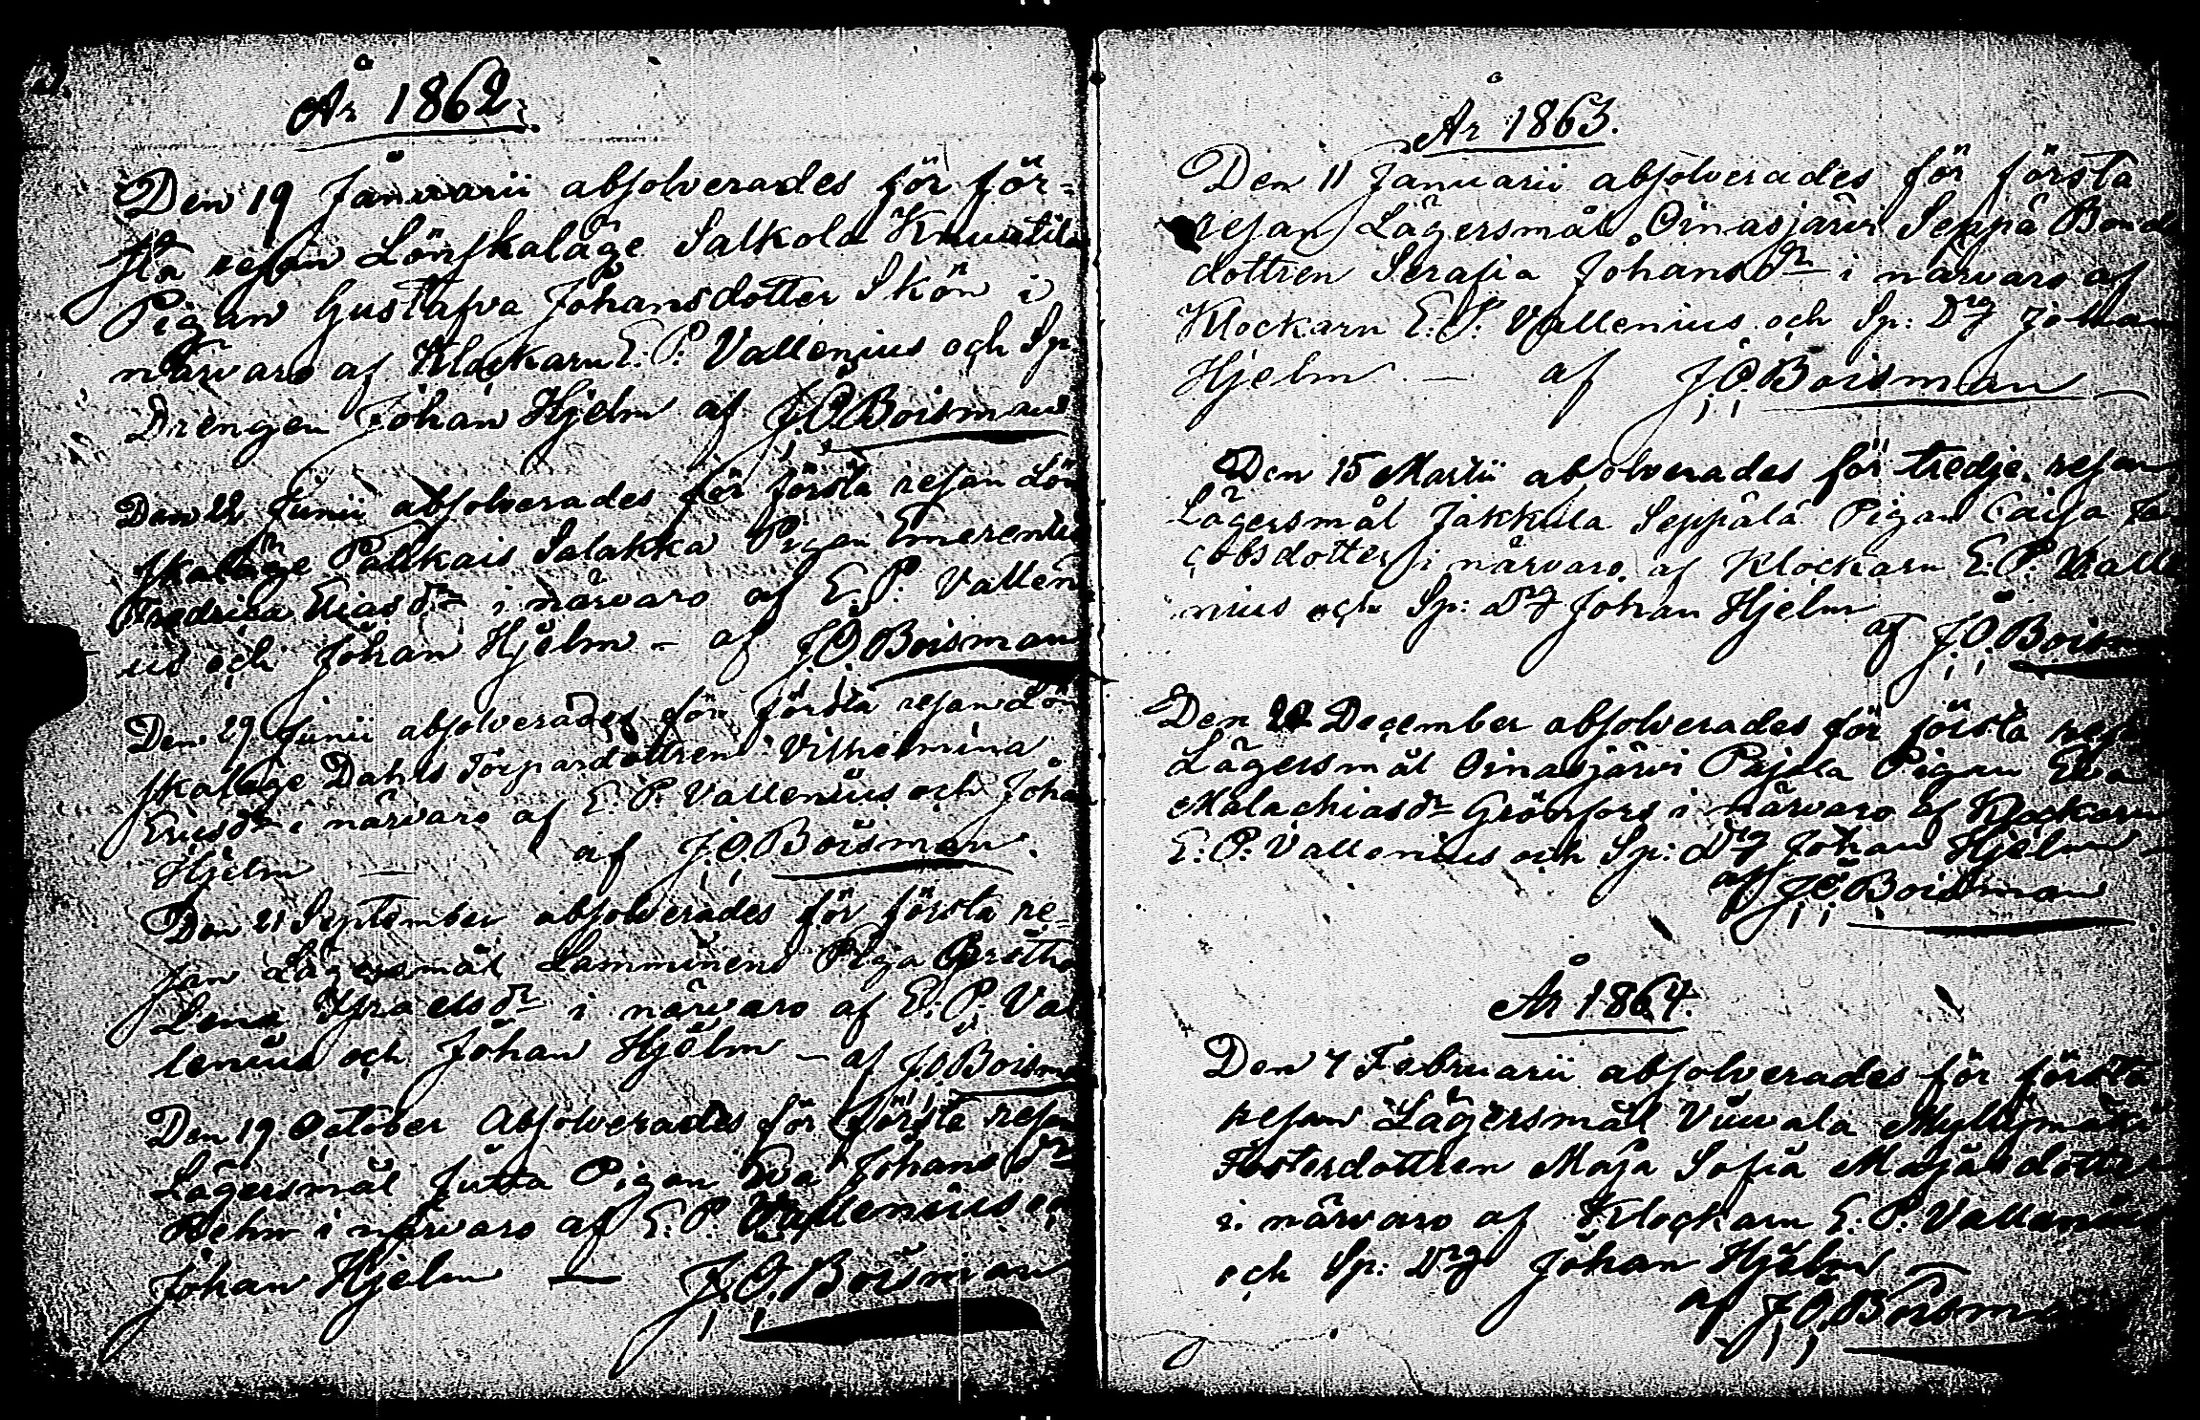 År 1862.
Den 19 Januarii absolverades för för-
sta resan Lönskaläge Salkola Knuutila
Pigan Gustafva Johansdotter Skön i
närvaro af Klockarn E. P. Vallenius och Sp:
Drengen Johan Hjelm af J. O. Boisman
Den 22 Junii absolverades för första resan Lön
skaläge Palikais Salakka Pigan Emerentia
Fredrica Eliasdr i närvaro af E. P. Valleni
us och Johan Hjelm - af J. O. Boisman
Den 29 Junii absolverades för första resan Lön
skaläge Dahls Torpardottren Vilhelmina
Ericsdr i närvaro af E. P. Vallenius och Johan
Hjelm — af J. O. Boisman.
Den 21 September absolverades för första re-
san Lägersmål Lamminens Piga Gretha
Lena Israelsdr i närvaro af E. P. Val
lenius och Johan Hjelm - af J. O. Boisman
Den 19 October Absolverades för första resan
Lägersmål Jutta Pigan Eva Johansdr
i närvaro af E. P. Vallenius och
Johan Hjelm — J. O. Boisman
År 1863.
Den 11 Januarii absolverades för första
resan Lägersmål Oinasjärvi Seppä Bonde
dottren Serafia Johansdr i närvaro af
Klockarn E. P. Vallenius och Sp: Drg Johan
Hjelm — af J. O. Boisman
Den 15 Martii absolverades för tredje resan
Lägersmål Jakkula Seppälä Pigan Caisa Ja
cobsdotter i närvaro af Klockarn E. P. Valle
nius och Sp: drg Johan Hjelm
af J. O. Boisman
Den December absolverades för första resan
Lägersmål Oinasjärvi Pajala Pigan Eva
Malachiasdr Grönfors i närvaro af Klockarn
E. P. Vallenius och Sp: drg Johan Hjelm -
af J. O. Boisman
År 1864.
Den 7 Februarii absolverades för första
resan Lägersmål Vuwala Myllymäki
Fosterdottren Maja Sofia Majasdotter
i närvaro af Klockarn E. P. Vallenius
och Sp: Drg Johan Hjelm —
af J. O. Boisman